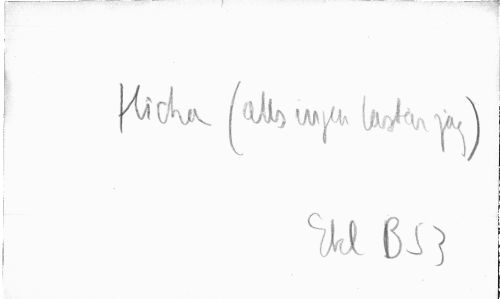 Hicka (alls ingen lastar jag)
Ekl B53